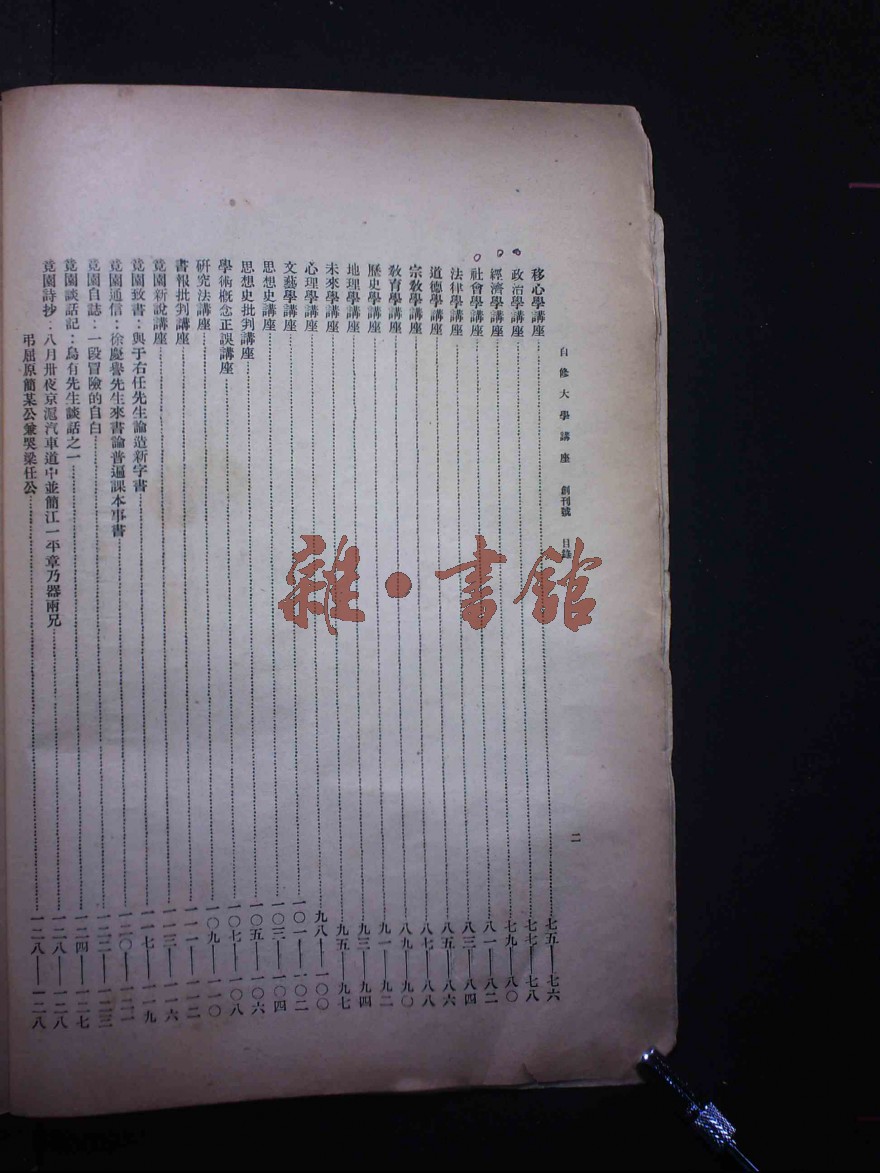 自修大學講座 創刊號 目錄 二
移心學講座……七五——七六
政治學講座……七七——七八
經濟學講座……七九——八〇
社會學講座……八一——八二
法律學講座……八三——八四
道德學講座……八五——八六
宗教學講座……八七——八八
教育學講座……八九——九〇
歷史學講座……九一——九二
地理學講座……九三——九四
未來學講座……九五——九七
心理學講座……九八——一〇〇
文藝學講座……一〇一——一〇二
思想史講座……一〇三——一〇四
思想史批判講座……一〇五——一〇六
學術概念正誤講座……一〇七——一〇八
研究法講座……一〇九——一一〇
書報批判講座……一一一——一一二
覓園新說講座……一一三——一一六
覓園致書：與于右任先生論造新字書……一一七——一一九
覓園通信：徐慶譽先生來書論普遍課本事書……一二〇——一二一
覓園自誌：一段冒險的自白……一二二——一二三
覓園談話記：烏有先生談話之一……一二四——一二七
覓園詩抄：八月卅夜京滬汽車道中並簡江一平章乃器兩兄……一二八——一二八
弔屈原簡某公兼哭梁任公……一二八——一二八
雜·書館